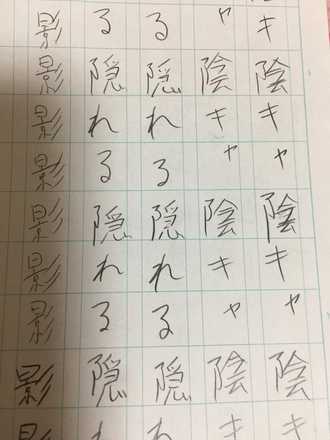 キ陰キャ陰キャ陰キ
ャ陰キャ陰キャ陰キ
る隠れる隠れる隠れ
る隠れる隠れる隠れ
影影影影影影影影影